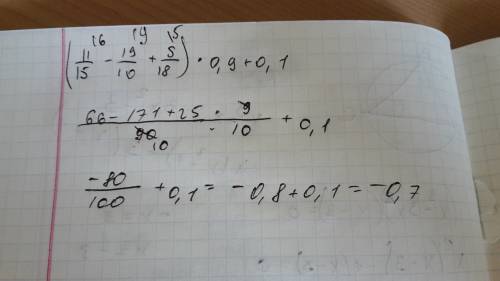 (11/15 - 19/10 + 5/18) · 0,9 + 0,1
66 - 171 + 25 · 9 / 90 · 10 + 0,1
10
-80/100 + 0,1 = -0,8 + 0,1 = -0,7